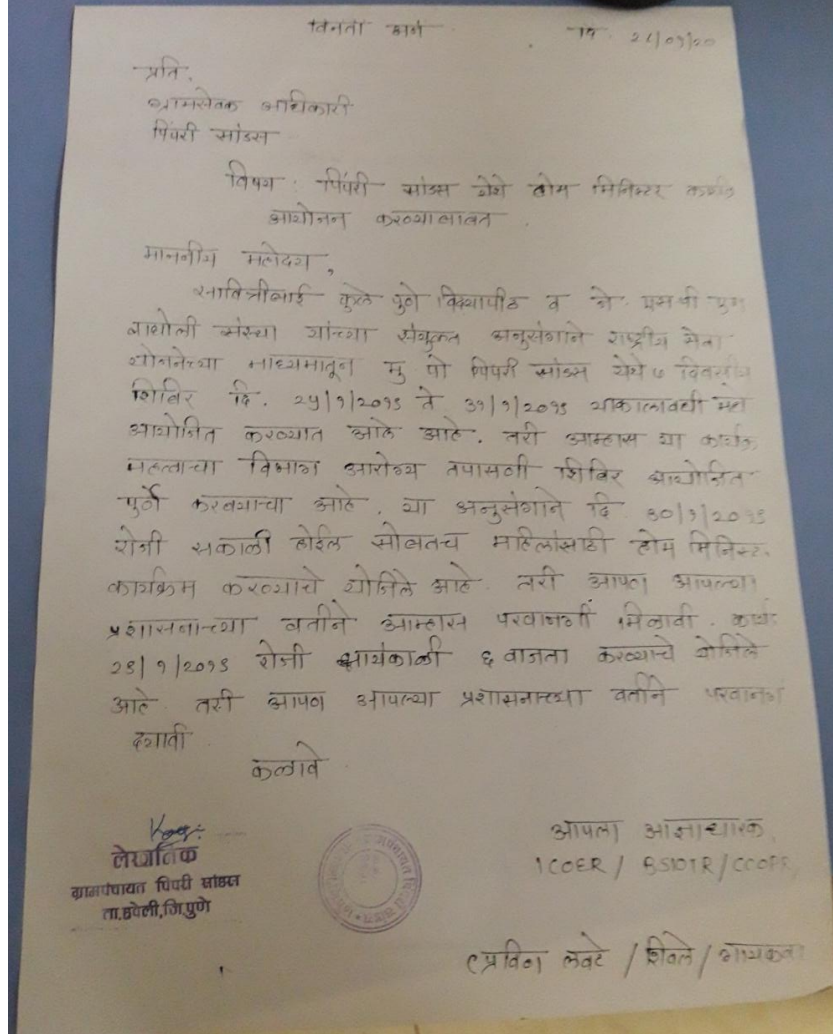 विनंती अर्ज
दि. 28/09/20
प्रति,
ग्रामसेवक अधिकारी
पिंपरी सांडस
विषय : पिंपरी सांडस येथे होम मिनिस्टर
आयोजन करण्याबाबत .
माननीय महोदय,
सावित्रीबाई फुले पुणे विद्यापीठ व जे. एस पी एम
वाघोली संस्था यांच्या संयुक्त अनुसंगाने राष्ट्रीय सेवा
योजनेच्या माध्यमातून मु पो पिंपरी सांडस येथे ७ दिवसीय
शिबिर दि. २५/१/२०१९ ते ३१/१/२०१९ याकालावधी मध्ये
आयोजित करण्यात आले आहे. तरी आम्हास या
महत्वाचा विभाग आरोग्य तपासणी शिबिर आयोजित
पूर्ण करवयाचा आहे. या अनुसंगाने दि ३०/१/२०१९
रोजी सकाळी होईल सोबतच महिलांसाठी होम मिनिस्टर
कार्यक्रम करण्याचे योजिले आहे. तरी आपण आपल्या
प्रशासनाच्या वतीने आम्हास परवानगी मिळावी.
२९/१/२०१९ रोजी सायंकाळी ६ वाजता करण्याचे योजिले
आहे. तरी आपण आपल्या प्रशासनाच्या वतीने परवानगी
द्यावी
कळावे
आपला आज्ञाधारक,
ICOER / BSIOTR / CCOPR
ग्रामपंचायत पिंपरी सांडस
ता.हवेली,जि.पुणे
प्रविण लवटे / शिवले / गायकवाड